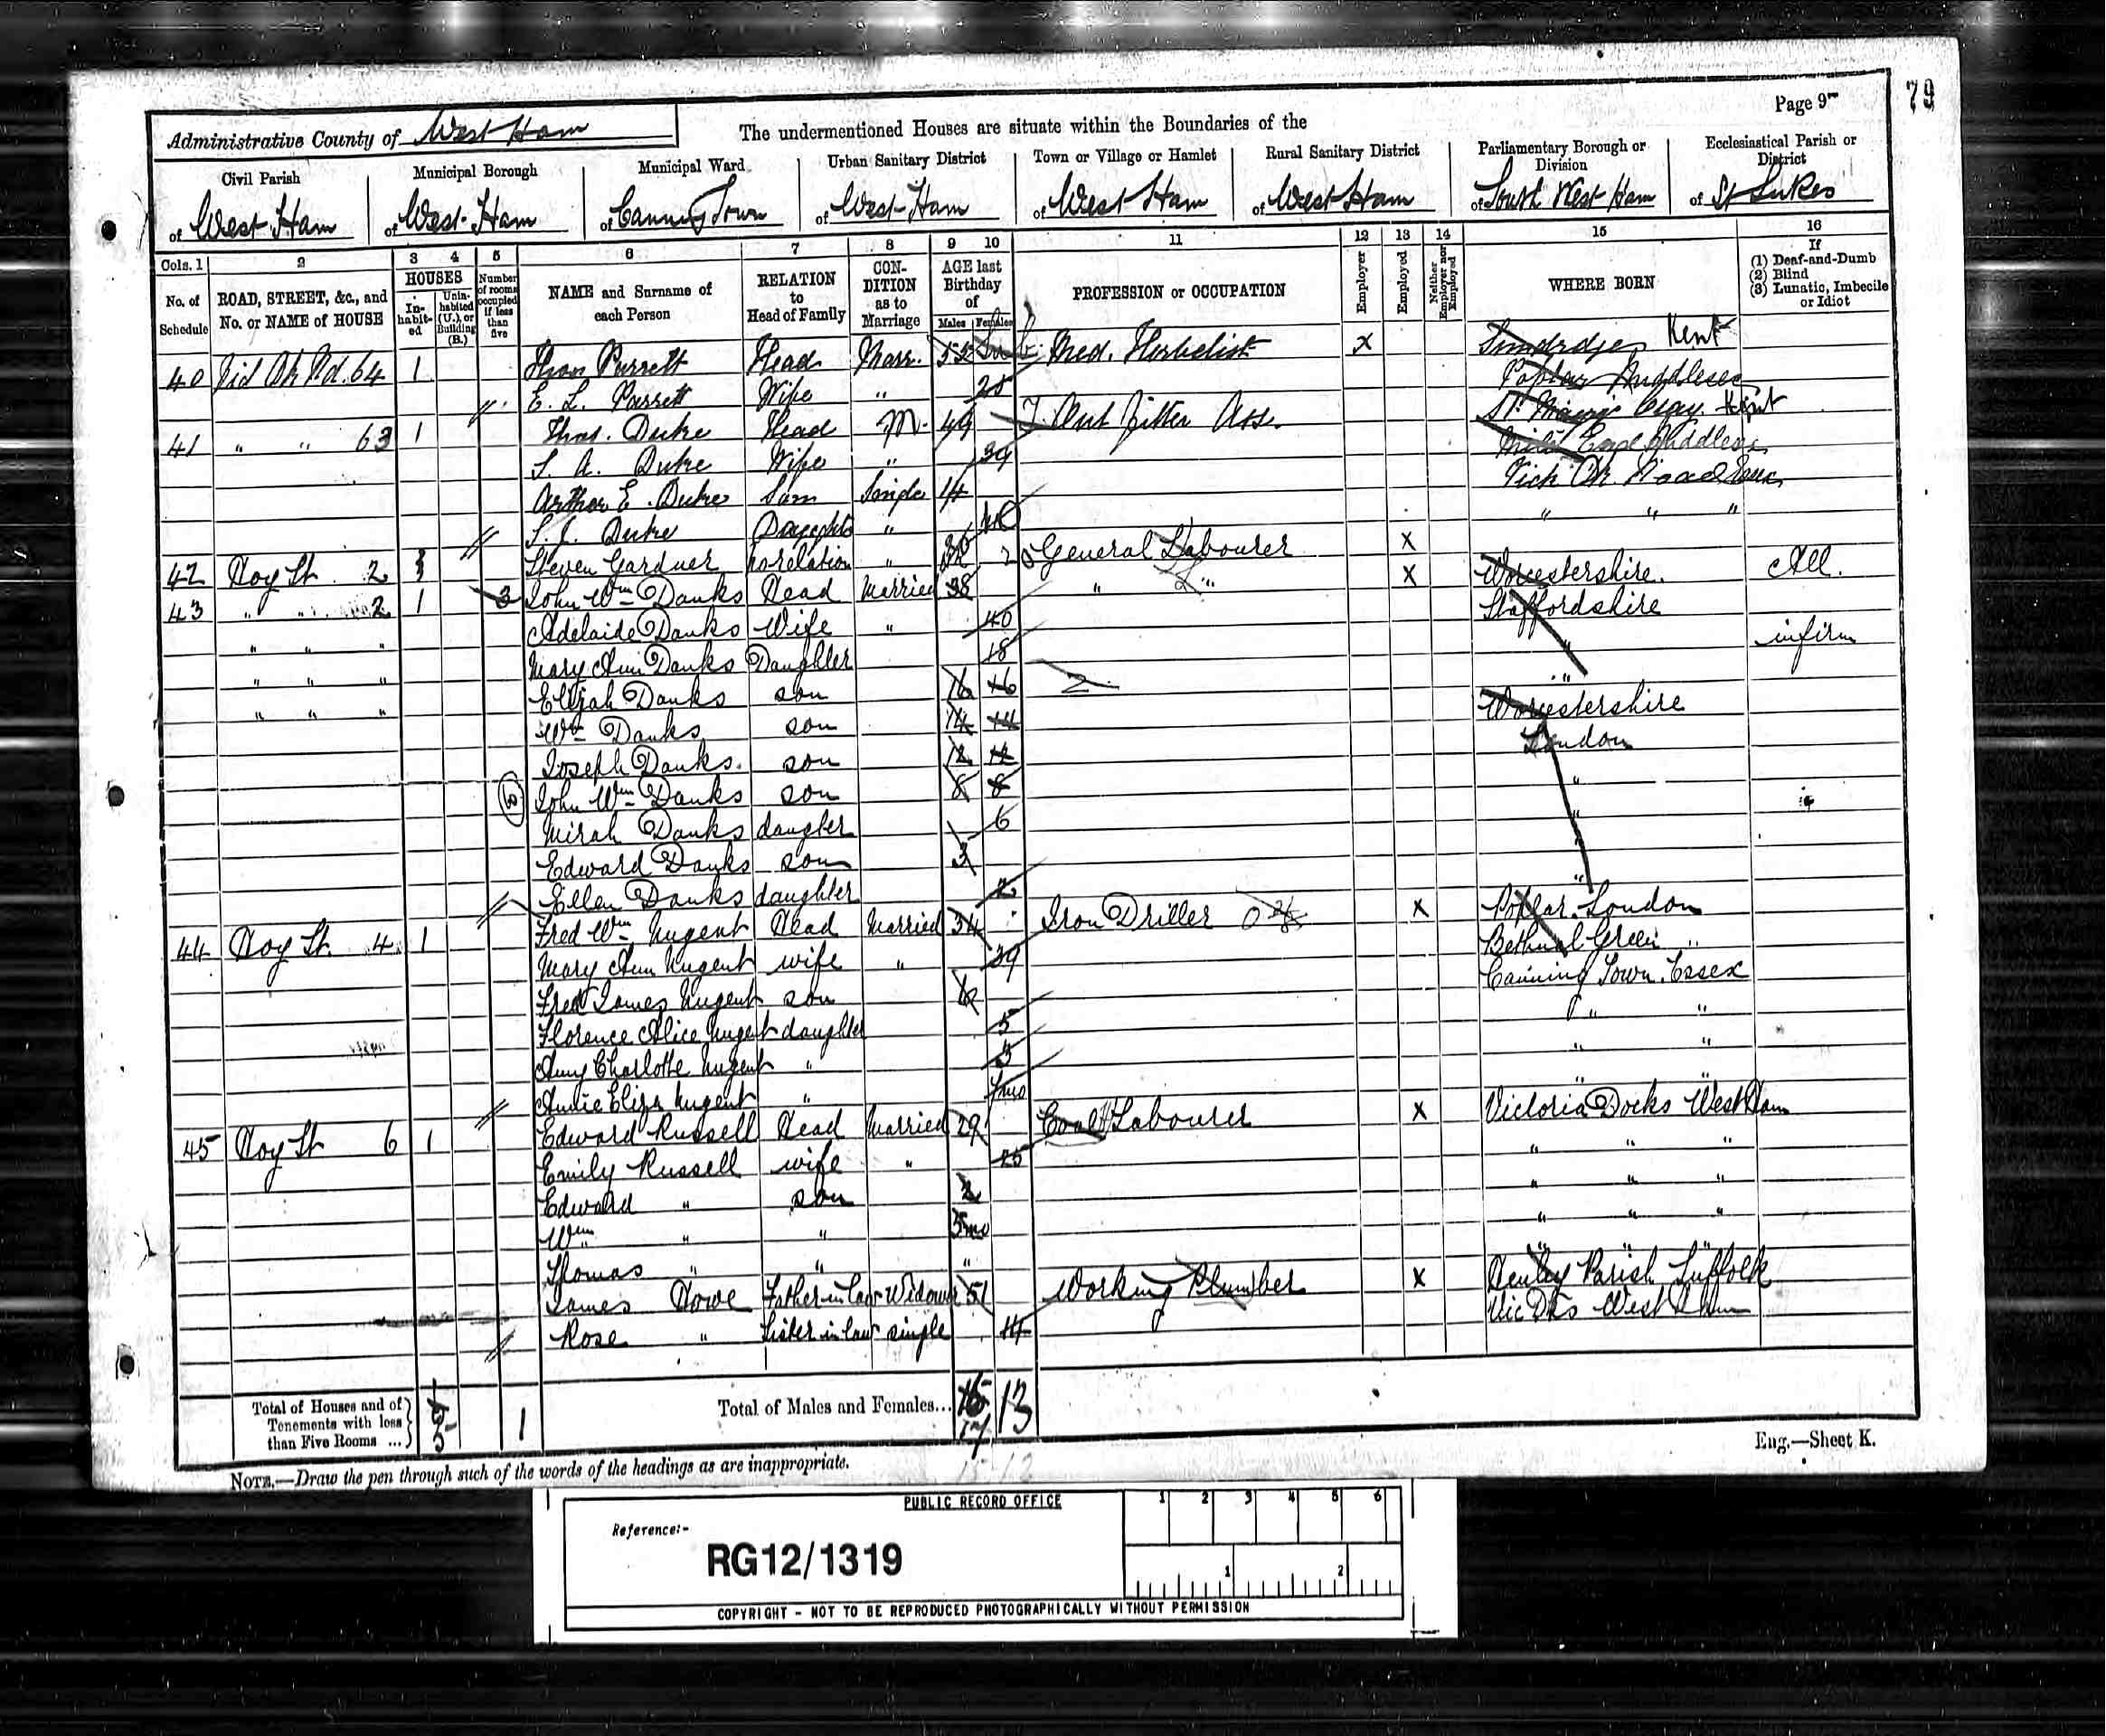 79
Page 9
Administrative County of West Ham
The undermentioned Houses are situate within the Boundaries of the
Civil Parish of West Ham
Municipal Borough of West Ham
Municipal Ward of Canning Town
Urban Sanitary District of West Ham
Town or Village or Hamlet of West Ham
Rural Sanitary District of West Ham
Parliamentary Borough or Division of South West Ham
Ecclesiastical Parish or District of St Lukes
Cols. 1 2 3 4 5 6 7 8 9 10 11 12 13 14 15 16
No. of Schedule
ROAD, STREET, &c., and No. or NAME of HOUSE
HOUSES
In-habit-ed
Unin-habited (U.), or Building (B.)
Number of rooms occupied if less than five
NAME and Surname of each Person
RELATION to Head of Family
CON-DITION as to Marriage
AGE last Birthday of
Males Females
PROFESSION or OCCUPATION
Employer
Employed
Neither Employer nor Employed
WHERE BORN
If (1) Deaf-and-Dumb (2) Blind (3) Lunatic, Imbecile or Idiot
40 Vic Dk Rd. 64 1 Thos Purrett Head Marr. 52 Med. Herbelist X Kent
E. L. Purrett Wife " 28 Poplar Middlesex
41 " " 63 1 Thos. Duke Head M. 49 St Marys Cray Kent
S. A. Duke Wife " 39 Mile End Middlesex
Arthur E. Duke Son Single 14 Vick Dk. Road Essex
S. J. Duke Daughter " 10 " " "
42 Hoy St 2 Steven Gardner no relation " General Labourer X
43 " " 2 1 3 John Wm Danks Head Married 38 " " X Worcestershire. All.
Adelaide Danks Wife " 40 Staffordshire
" " " Mary Ann Danks Daughter 18 " infirm
" " " Elijah Danks son 16 16 "
" " " Wm Danks son 14 14 Worcestershire
Joseph Danks. son 12 12 London
John Wm Danks son 8 8 "
Mirah Danks daugter 6 "
Edward Danks son 3 "
Ellen Danks daughter 2 "
44 Hoy St. 4 1 Fred Wm Nugent Head Married 34 Iron Driller X Poplar. London
Mary Ann Nugent wife " 39 Bethnal Green "
Fred James Nugent son Canning Town. Essex
Florence Alice Nugent daughter 5 " "
Amy Charlotte Nugent " 3 " "
Annie Eliza Nugent " 7mo " "
45 Hoy St 6 1 Edward Russell Head Married 29 Coal Labourer X Victoria Docks West Ham
Emily Russell wife " 25 " "
Edward " son 2 " "
Wm " " 5mo " "
Thomas " " " " " "
James Howe Father in law Widower 51 Working Plumber X Henley Parish Suffolk
Rose " Sister in law single 14 Vic Dks West Ham
Total of Houses and of Tenements with less than Five Rooms ... 5 1
Total of Males and Females... 17 13
NOTE.—Draw the pen through such of the words of the headings as are inappropriate.
Eng.—Sheet K.
PUBLIC RECORD OFFICE
1 2 3 4 5 6
Reference:-
RG12/1319
1 2
COPYRIGHT - NOT TO BE REPRODUCED PHOTOGRAPHICALLY WITHOUT PERMISSION